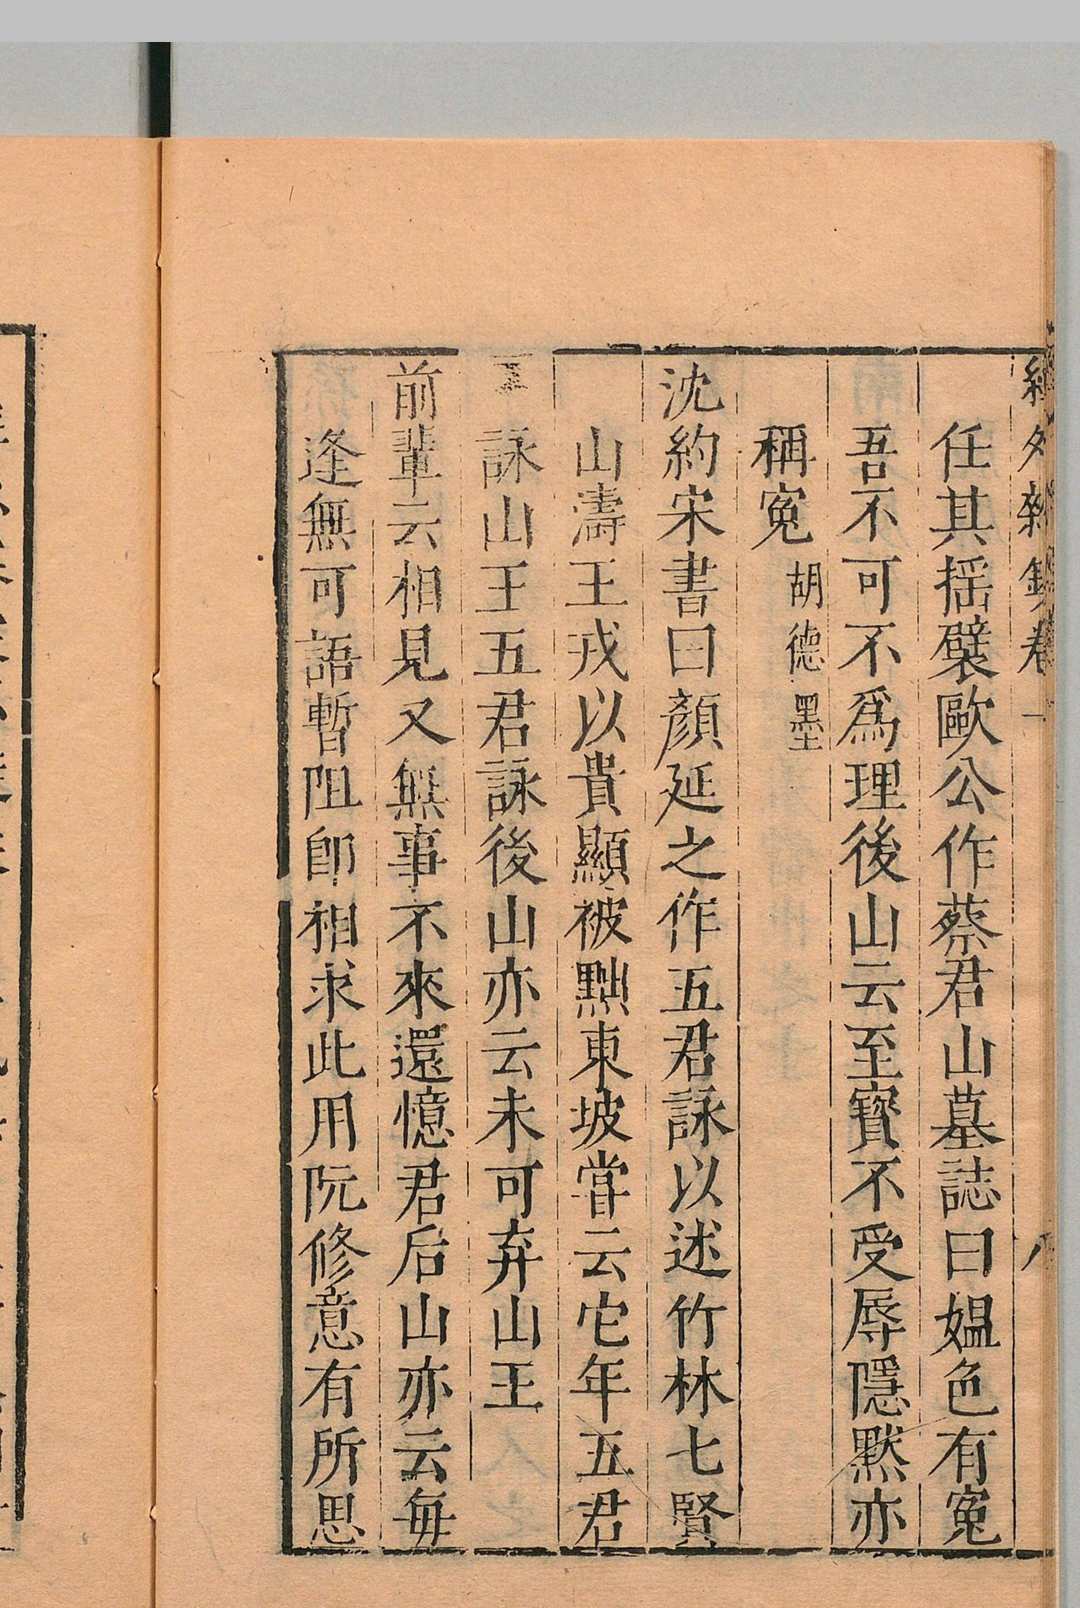 外雜鈔卷一 八
任其揺襞歐公作蔡君山墓誌曰媼色有寃
吾不可不爲理後山云至寳不受辱隱黙亦
稱寃胡德墨
沈約宋書曰顏延之作五君詠以述竹林七賢
山濤王戎以貴顯被黜東坡嘗云它年五君
詠山王五君詠後山亦云未可弃山王
前輩云相見又無事不來還憶君后山亦云毎
逢無可語暫阻卽相求此用阮修意有所思